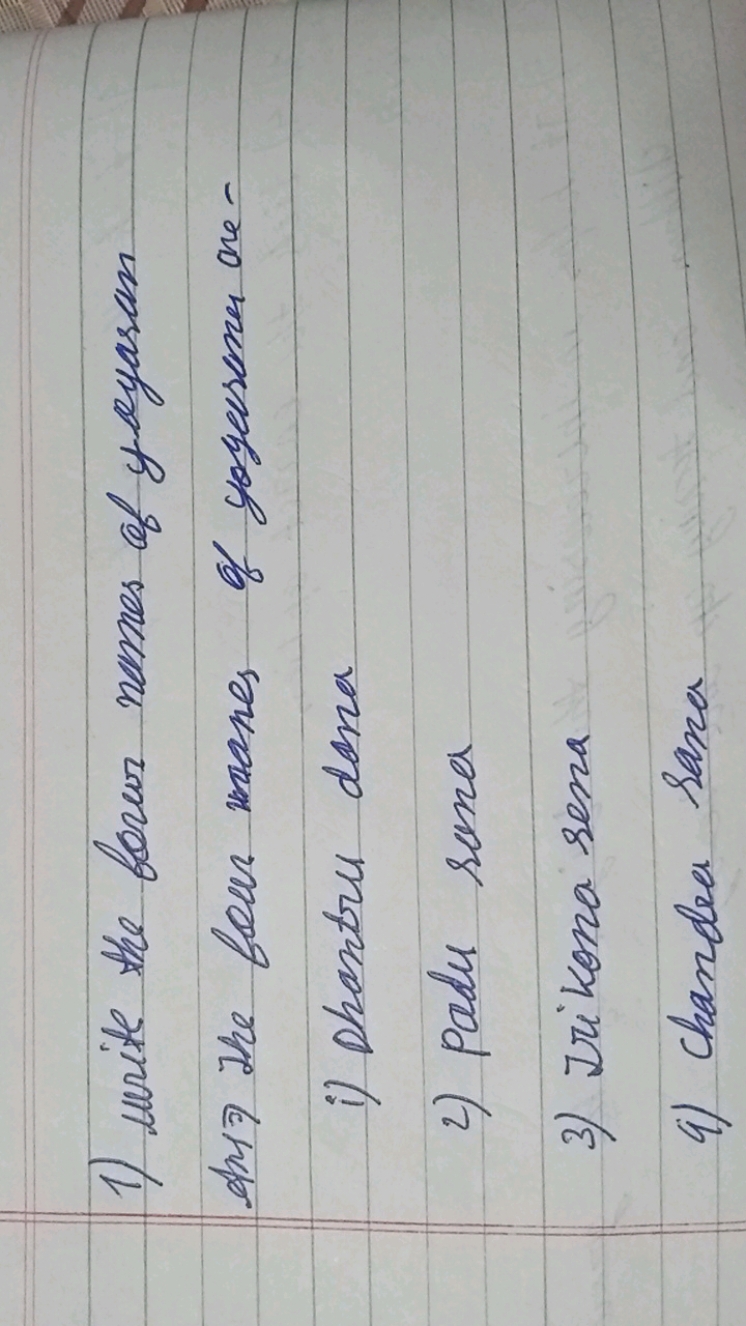 1) write the four names of yogasan
Ans⇒ The four manes of yogasana are -
i) Dhantru dana
2) Padu sana
3) Trikona sena
4) Chandra sana